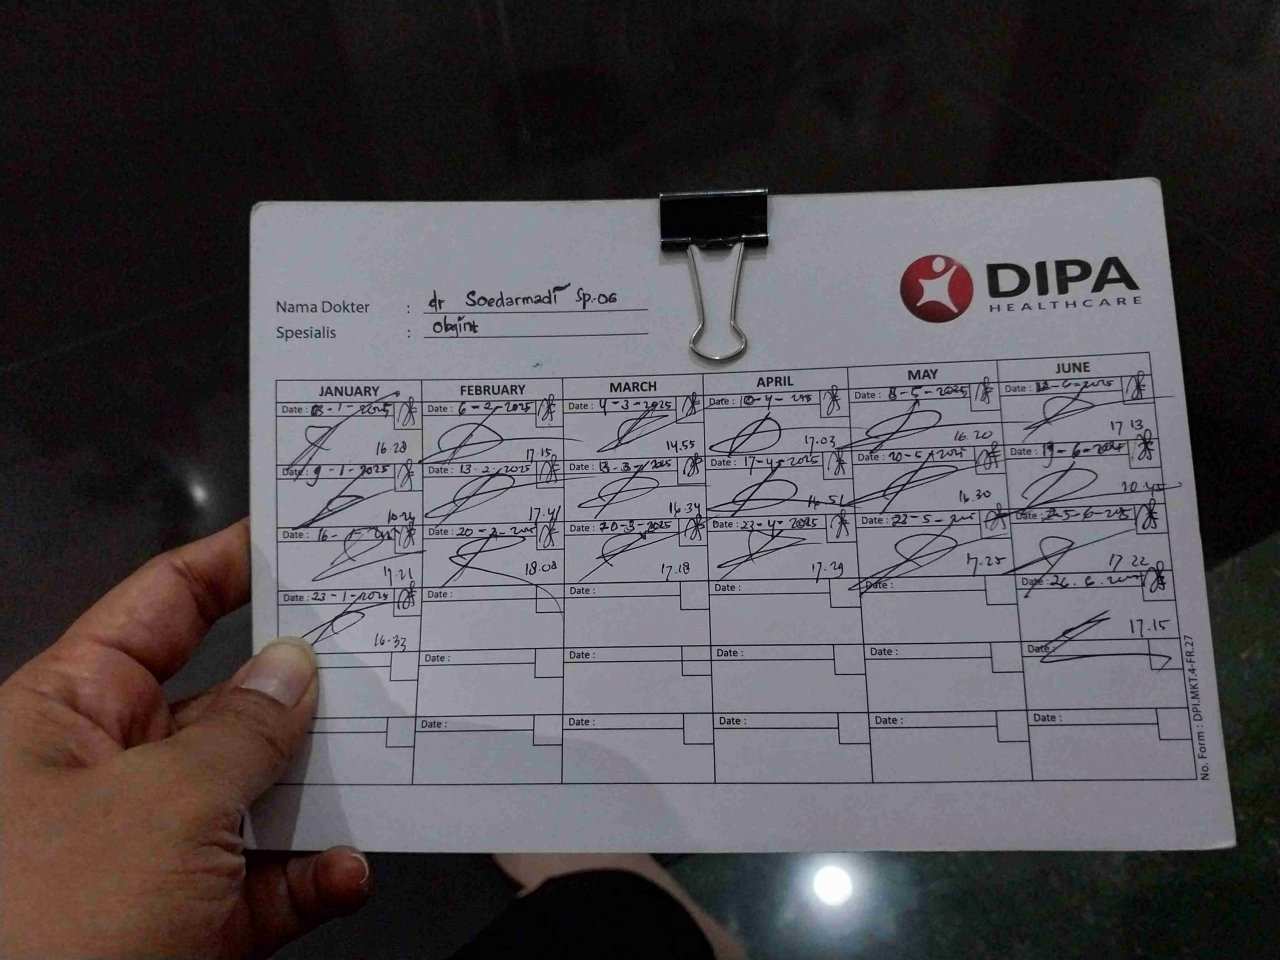 DIPA
HEALTHCARE
Nama Dokter : dr Soedarmadi Sp.OG
Spesialis :
JANUARY FEBRUARY MARCH APRIL MAY JUNE
Date : 03-1-2025 Date : 6-2-2025 Date : 4-3-2025 Date : 10-4-2025 Date : 8-5-2025 Date : 12-6-2025
16.28 17.15 14.55 17.03 16.20 17.13
Date : 9-1-2025 Date : 13-2-2025 Date : 13-3-2025 Date : 17-4-2025 Date : 20-5-2025 Date : 19-6-2025
17.41 16.34 16.51 16.30 20.45
Date : 16-1- Date : 20-2-2025 Date : 20-3-2025 Date : 23-4-2025 Date : 22-5-2025 Date : 25-6-2025
17.21 18.08 17.18 17.29 17.25 17.22
Date : 23-1-2025 Date : Date : Date : Date : Date : 26.6.2025
16.33 17.15
Date : Date : Date : Date : Date :
Date : Date : Date : Date : Date :
No. Form : DPI.MKT.4-FR.27